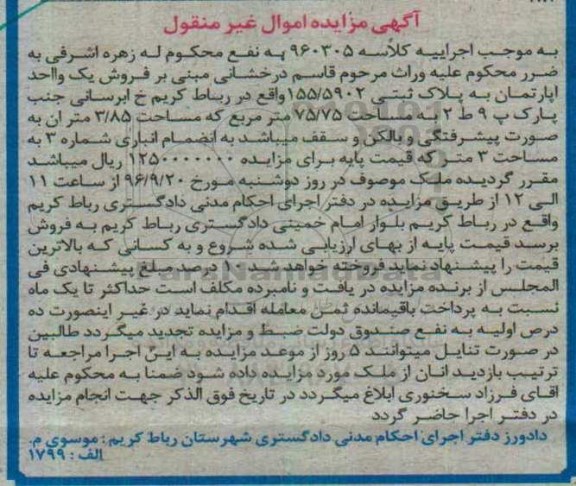 آگهی مزایده اموال غیر منقول
به موجب اجراییه کلاسه ۹۶۰۳۰۵ به نفع محکوم له زهره اشرفی به
ضرر محکوم علیه وراث مرحوم قاسم درخشانی مبنی بر فروش یک وااحد
اپارتمان به پلاک ثبتی ۱۵۵/۵۹۰۲واقع در رباط کریم خ ابرسانی جنب
پارک پ ۹ ط ۲ به مساحت ۷۵/۷۵ متر مربع که مساحت ۳/۸۵ متر ان به
صورت پیشرفتگی و بالکن و سقف میباشد به انضمام انباری شماره ۳ به
مساحت ۳ متر که قیمت پایه برای مزایده ۱۲۵۰۰۰۰۰۰۰ ریال میباشد
مقرر گردیده ملک موصوف در روز دوشنبه مورخ ۹۶/۹/۲۰ از ساعت ۱۱
الی ۱۲ از طریق مزایده در دفتر اجرای احکام مدنی دادگستری رباط کریم
واقع در رباط کریم بلوار امام خمینی دادگستری رباط کریم به فروش
برسد قیمت پایه از بهای ارزیابی شده شروع و به کسانی که بالاترین
قیمت را پیشنهاد نماید فروخته خواهد شد ۱۰ درصد مبلغ پیشنهادی فی
المجلس از برنده مزایده در یافت و نامبرده مکلف است حداکثر تا یک ماه
نسبت به پرداخت باقیمانده ثمن معامله اقدام نماید در غیر اینصورت ده
درص اولیه به نفع صندوق دولت ضبط و مزایده تجدید میگردد طالبین
در صورت تنایل میتوانند ۵ روز از موعد مزایده به این اجرا مراجعه تا
ترتیب بازدید انان از ملک مورد مزایده داده شود ضمنا به محکوم علیه
اقای فرزاد سخنوری ابلاغ میگردد در تاریخ فوق الذکر جهت انجام مزایده
در دفتر اجرا حاضر گردد
دادورز دفتر اجرای احکام مدنی دادگستری شهرستان رباط کریم : موسوی م.
الف : ۱۷۹۹